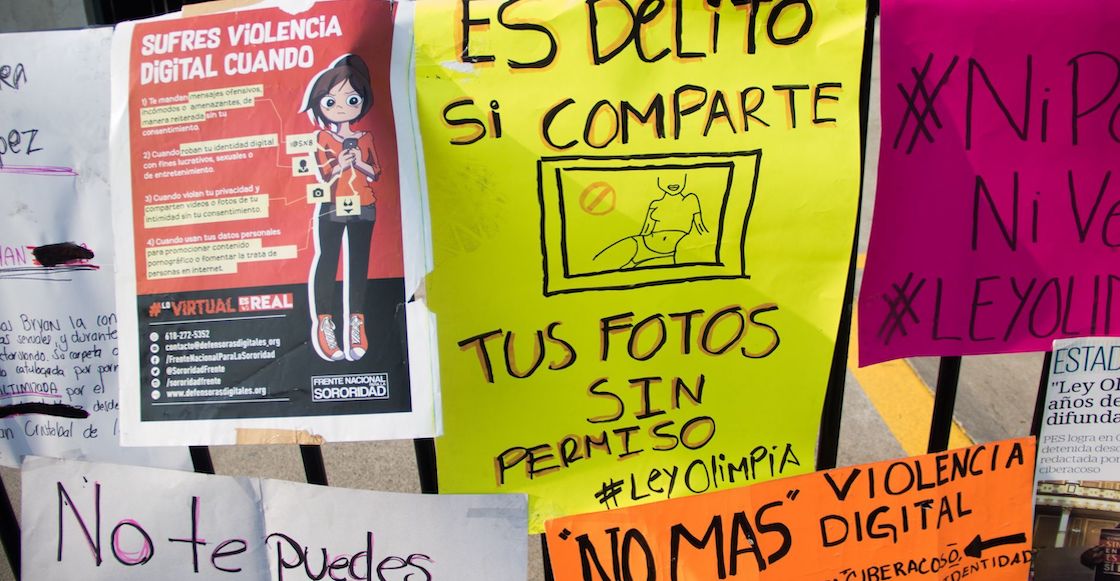 SUFRES VIOLENCIA
DIGITAL CUANDO
1) Te mandan mensajes ofensivos,
incómodos o amenazantes, de
manera reiterada sin tu
consentimiento.
2) Cuando roban tu identidad digital
con fines lucrativos, sexuales o
de entretenimiento.
3) Cuando violan tu privacidad y
comparten videos o fotos de tu
intimidad sin tu consentimiento.
4) Cuando usan tus datos personales
para promocionar contenido
pornográfico o fomentar la trata de
personas en internet.
#LO VIRTUAL ES REAL
618-272-5352
contacto@defensorasdigitales.org
/FrenteNacionalParaLaSororidad
@SororidadFrente
/sororidadfrente
www.defensorasdigitales.org
FRENTE NACIONAL
SORORIDAD
ES DELITO
Si COMPARTE
TUS FOTOS
SIN
PERMISO
#LEYOLIMPIA
#Ni P
Ni Ve
#LEYOLI
BRYAN la con
sexuales, y durante
su carpeta
por el
desde
Cristobal de
No te puedes
"NO MAS" VIOLENCIA
DIGITAL
CIBERACOSO
IDENTIDAD
ESTAD
"Ley Ol
años de
difunda
PES logra en
detenida des
redactada por
ciberacoso